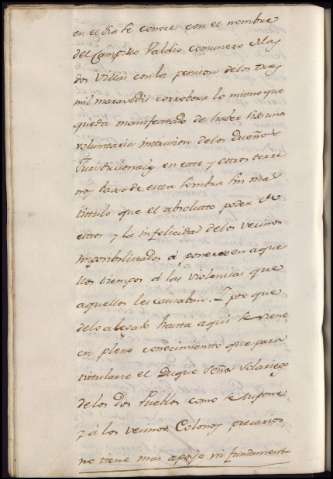 en el dia se conoce con el nombre
del Campillo Valdio comunero de las
dos Villas con la pension de los tres
mil maravedis corrobora lo mismo que
queda manifestado de haber sido una
voluntaria invencion de los Dueños
Jurisdiccionales en este y otros terre
nos baxo de esta sombra sin mas
titulo que el absoluto poder de
estos y la infelicidad de los vecinos
imposibilitados a oponerse en aque
llos tiempos a las violencias que
aquellos les causaban. Y por que
de lo alegado hasta aqui se viene
en pleno conocimiento que para
titularse el Duque Dueño Solariego
de los dos Pueblos como se supone
y a los vecinos Colonos precarios,
no tiene mas apoyo ni fundamento